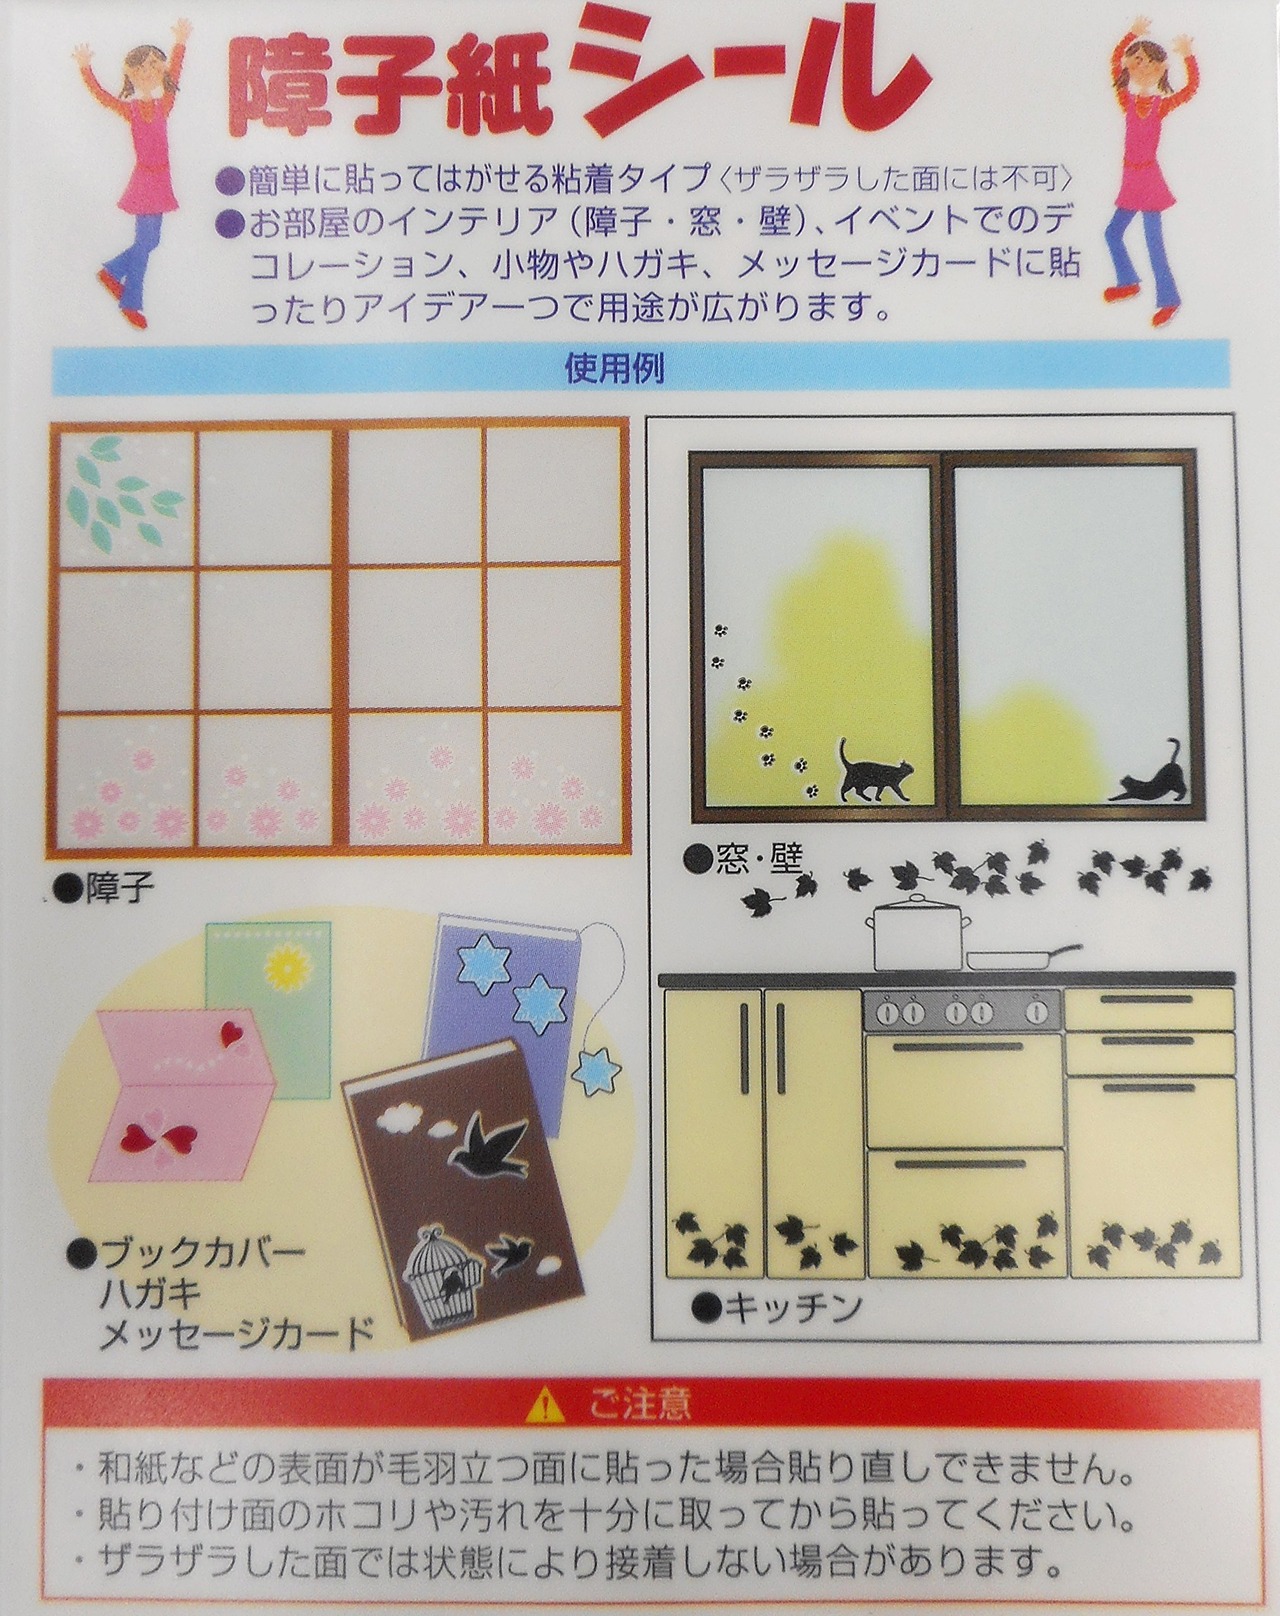 障子紙シール
●簡単に貼ってはがせる粘着タイプ〈ザラザラした面には不可〉
●お部屋のインテリア(障子・窓・壁)、イベントでのデ
コレーション、小物やハガキ、メッセージカードに貼
ったりアイデア一つで用途が広がります。
使用例
●障子
●窓・壁
●ブックカバー
ハガキ
メッセージカード
●キッチン
ご注意
・和紙などの表面が毛羽立つ面に貼った場合貼り直しできません。
・貼り付け面のホコリや汚れを十分に取ってから貼ってください。
・ザラザラした面では状態により接着しない場合があります。